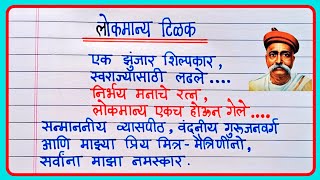 लोकमान्य टिळक
एक झुंजार शिल्पकार,
स्वराज्यासाठी लढले....
निर्भय मनाचे रत्न,
लोकमान्य एकच होऊन गेले....
सन्माननीय व्यासपीठ, वंदनीय गुरुजनवर्ग
आणि माझ्या प्रिय मित्र-मैत्रिणींनो,
सर्वांना माझा नमस्कार.